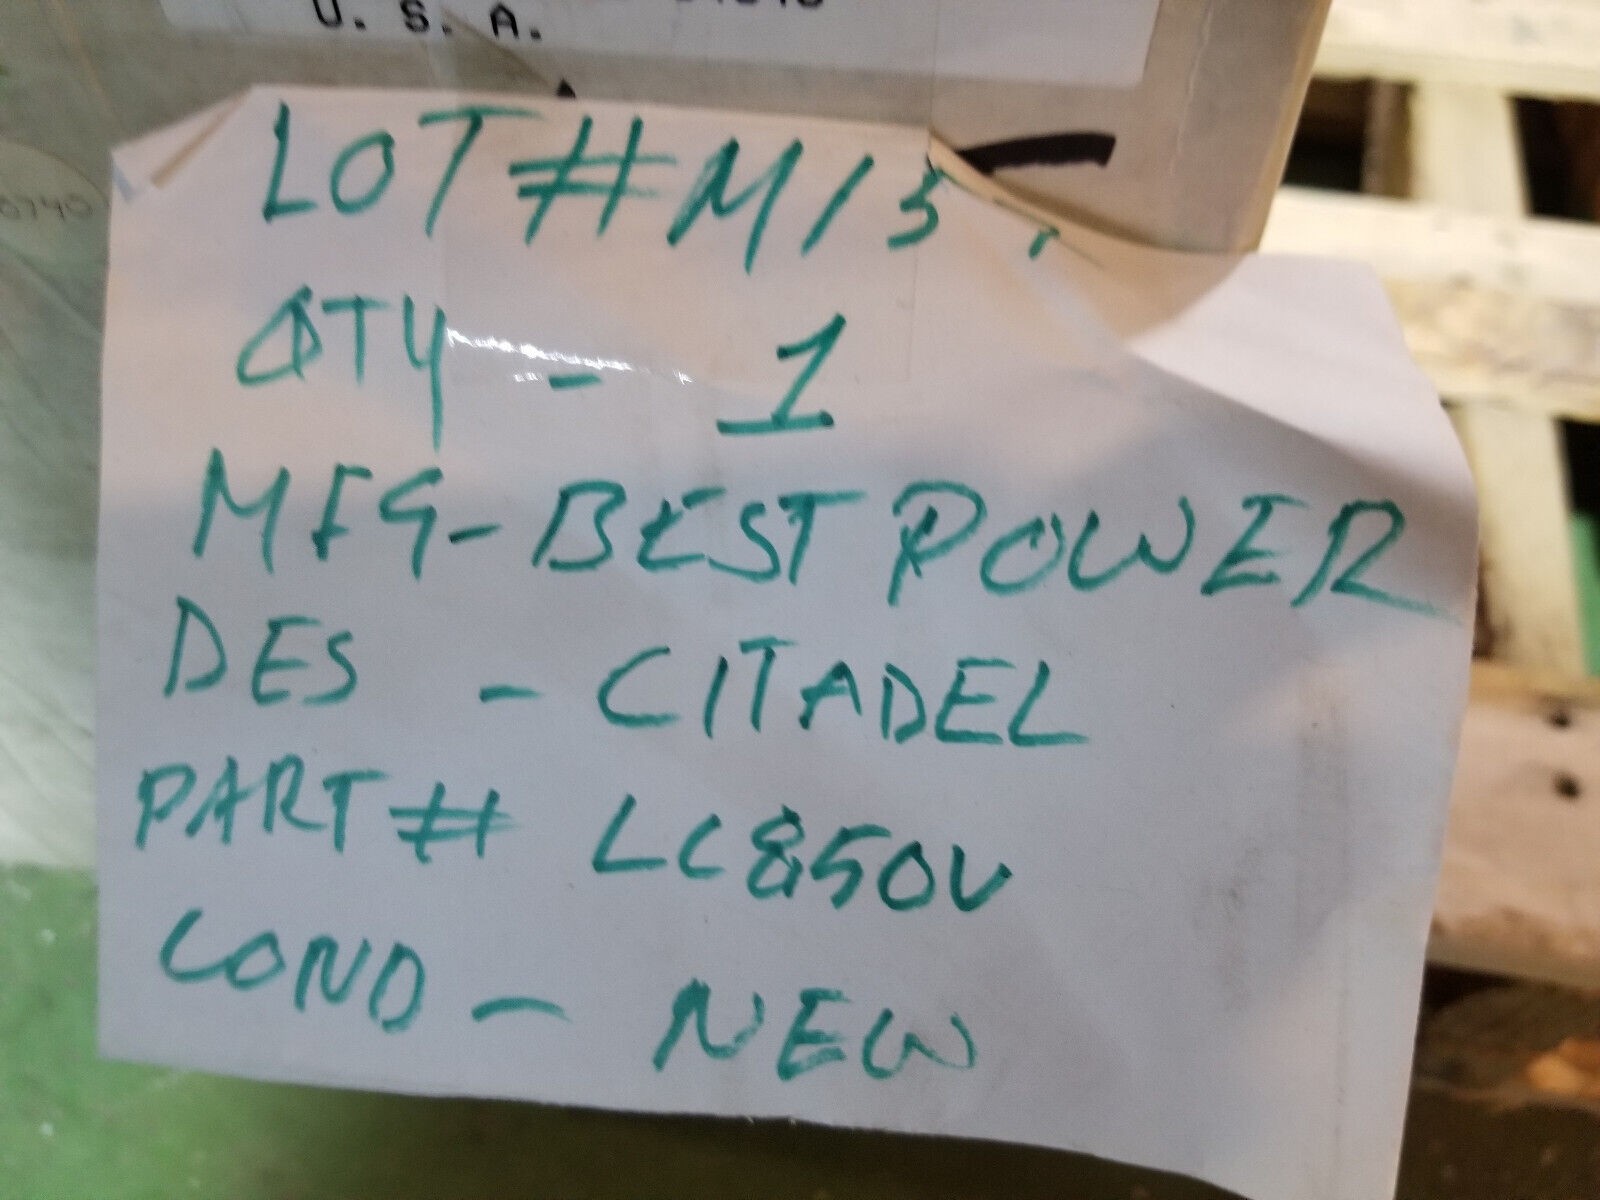 U. S. A.
LOT # M13
QTY - 1
MFG - BEST POWER
DES - CITADEL
PART # LC850V
COND - NEW